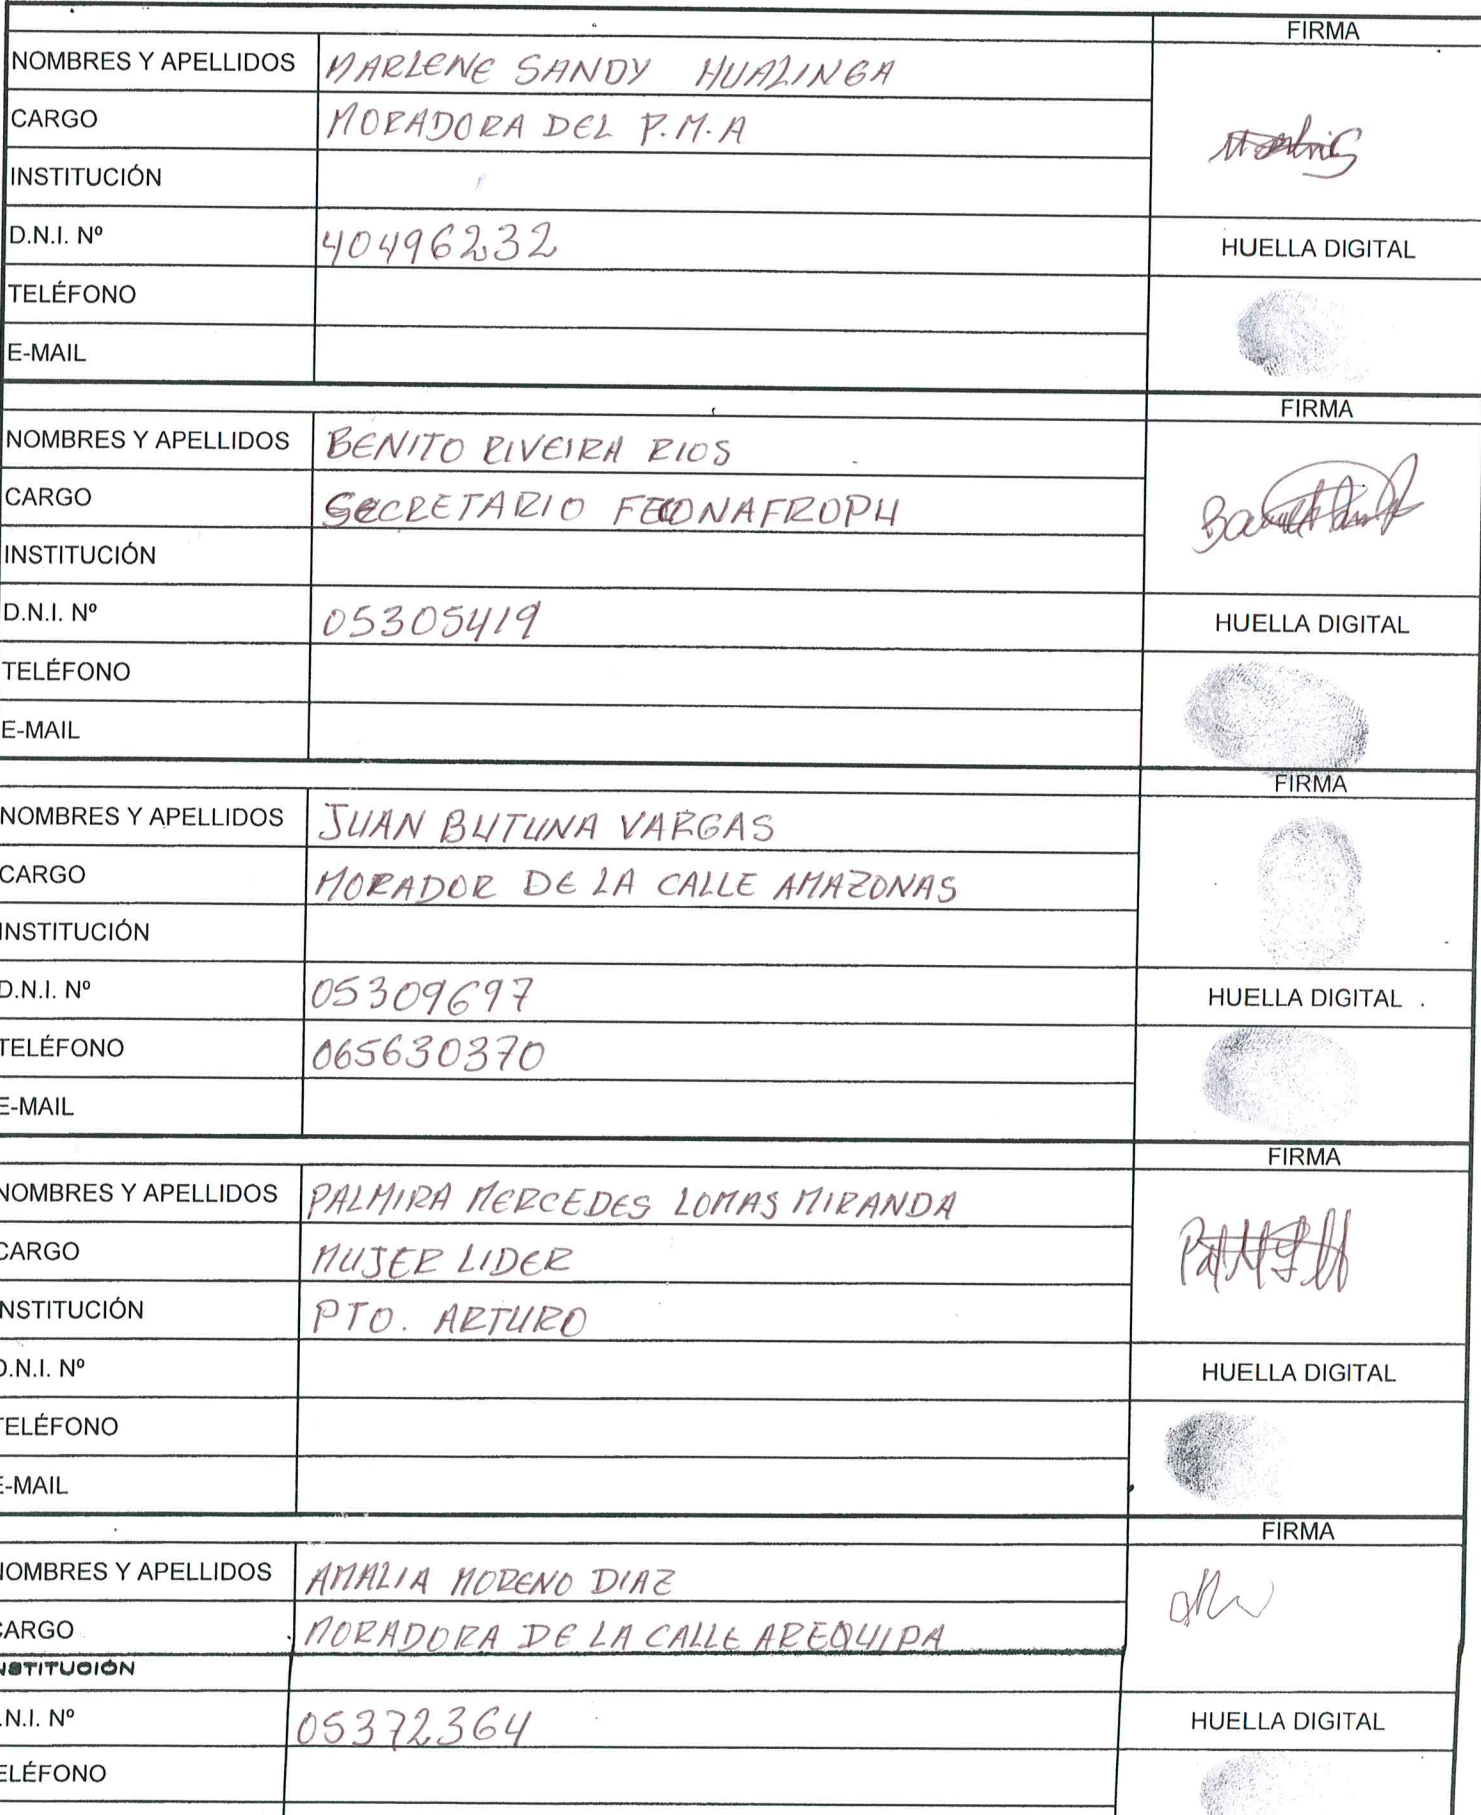 FIRMA
NOMBRES Y APELLIDOS MARLENE SANDY HUALINGA
CARGO MORADORA DEL P.M.A
INSTITUCIÓN
D.N.I. Nº 40496232 HUELLA DIGITAL
TELÉFONO
E-MAIL
FIRMA
NOMBRES Y APELLIDOS BENITO RIVEIRA RIOS
CARGO SECRETARIO FECONAFROPU
INSTITUCIÓN
D.N.I. Nº 05305419 HUELLA DIGITAL
TELÉFONO
E-MAIL
FIRMA
NOMBRES Y APELLIDOS JUAN BUTUNA VARGAS
CARGO MORADOR DE LA CALLE AMAZONAS
INSTITUCIÓN
D.N.I. Nº 05309697 HUELLA DIGITAL
TELÉFONO 065630370
E-MAIL
FIRMA
NOMBRES Y APELLIDOS PALMIRA MERCEDES LOMAS MIRANDA
CARGO MUJER LIDER
INSTITUCIÓN PTO. ARTURO
D.N.I. Nº HUELLA DIGITAL
TELÉFONO
E-MAIL
FIRMA
NOMBRES Y APELLIDOS AMALIA MORENO DIAZ
CARGO MORADORA DE LA CALLE AREQUIPA
INSTITUCIÓN
.N.I. Nº 05372364 HUELLA DIGITAL
ELÉFONO